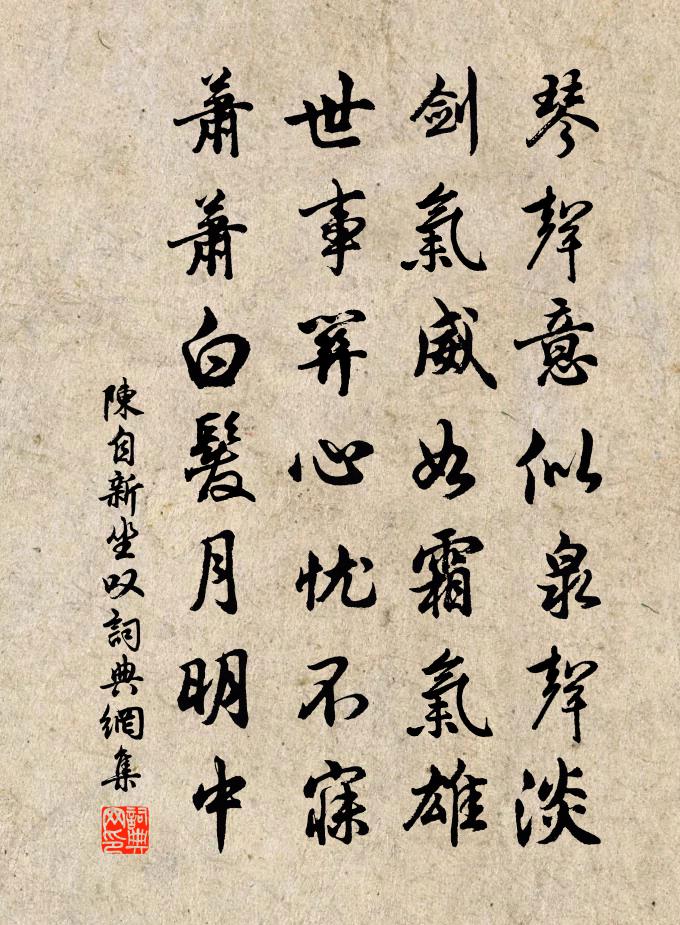 琴聲意似泉聲淡
劍氣威如霜氣雄
世事關心忧不寐
蕭蕭白髮月明中
陳自新坐叹詞典網集
詞典网印